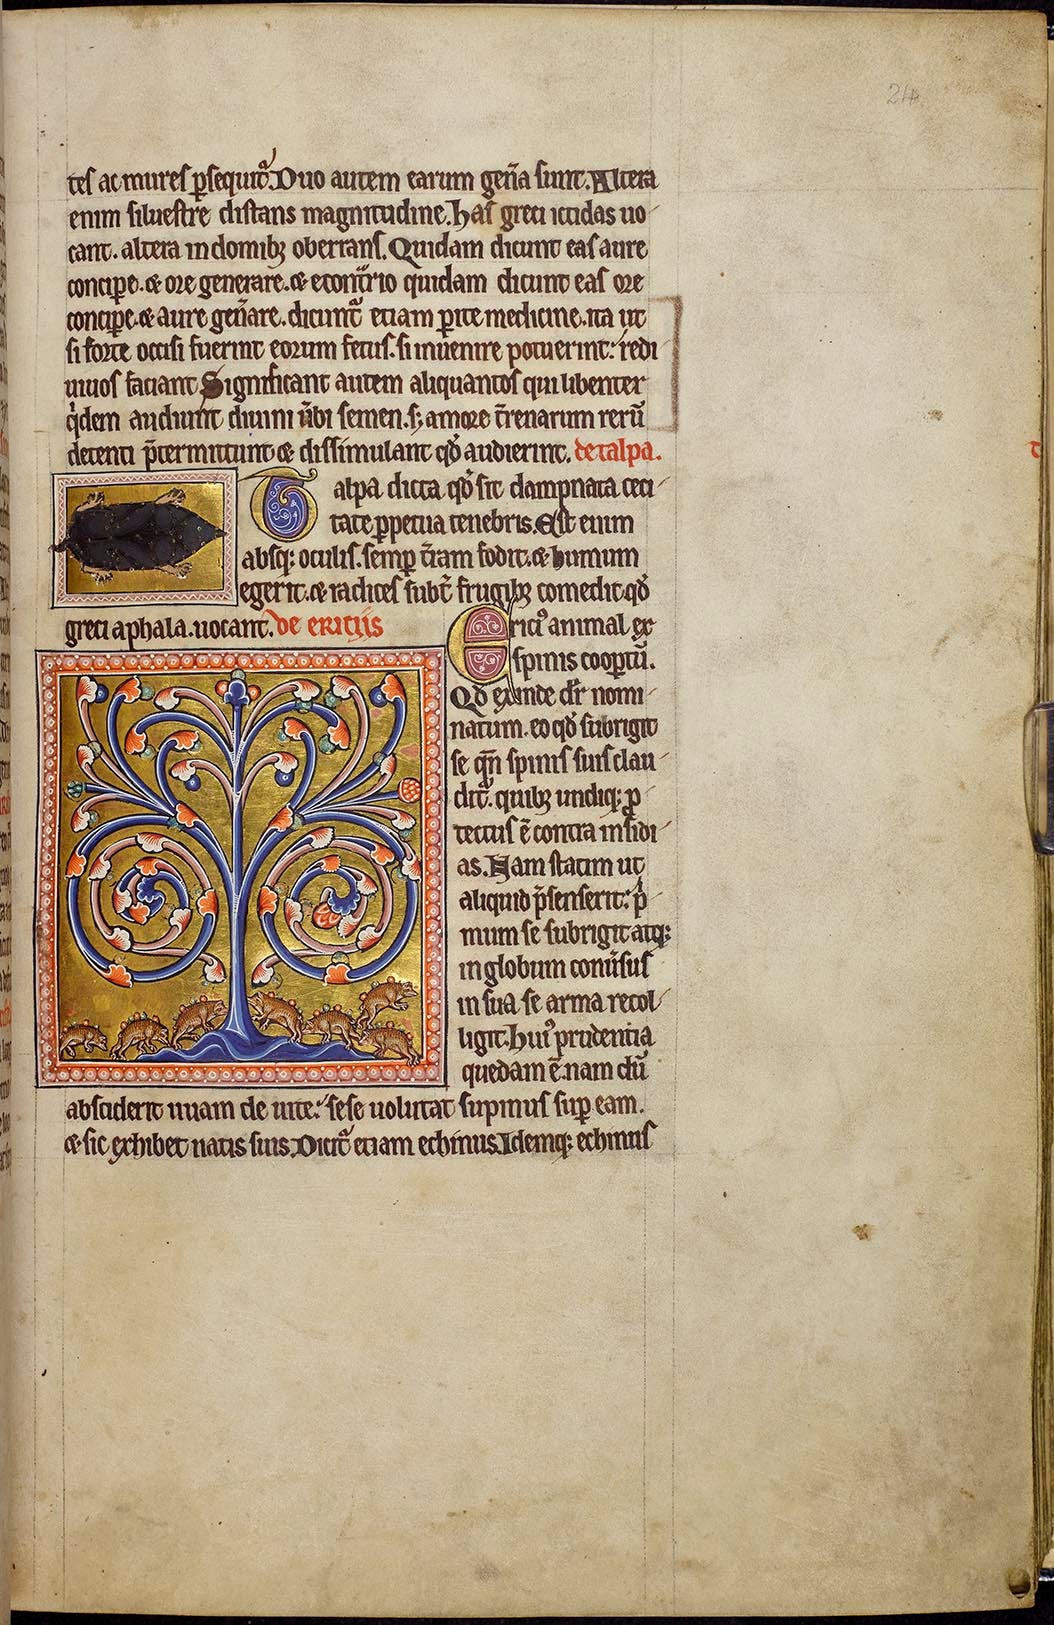 24
tes ac mures p̱sequit᷑. Duo autem earum gen̄a sunt. Altera
enim siluestre distans magnitudine. Has greci ictidas uo
cant. altera in domibꝫ oberrans. Quidam dicunt eas aure
concipe. ⁊ ore generare. ⁊ econt᷑rio quidam dicunt eas ore
concipe. ⁊ aure gen̄are. dicunt᷑ etiam ꝑite medicine. ita ut
si forte occisi fuerint eorum fetus. si inuenire potuerint: redi
uiuos faciant Significant autem aliquantos qui libenter
qͥdem audiunt diuini ūbi semen. sꝫ amore t̄renarum rerū
detenti p̄termittunt ⁊ dissimulant qđ audierint. de talpa.
Talpa dicta qđ sit dampnata ceci
tate ꝑpetua tenebris. Est enim
absqꝫ oculis. semꝑ t̄ram fodit. ⁊ humum
egerit. ⁊ radices subt̄ frugibꝫ comedit. qđ
greci aphala. uocant. de ericiis
Ericiꝰ animal ex
spinis cooptū.
Qđ exinde dr̄ nomi
natum. eo qđ subrigit
se qn̄ spinis suis clau
dit᷑. quibꝫ undiqꝫ ꝓ
tectus ē contra insidi
as. Nam statim ut
aliquid p̄senserit: pͥ
mum se subrigit atqꝫ
in globum conūsus
in sua se arma recol
ligit. Huiꝰ prudentia
quedam ē. nam cū
absciderit uuam de uite: sese uolutat supinus suꝑ eam.
⁊ sic exhibet natis suis. Dicit᷑ etiam echinus. Idemqꝫ echinus